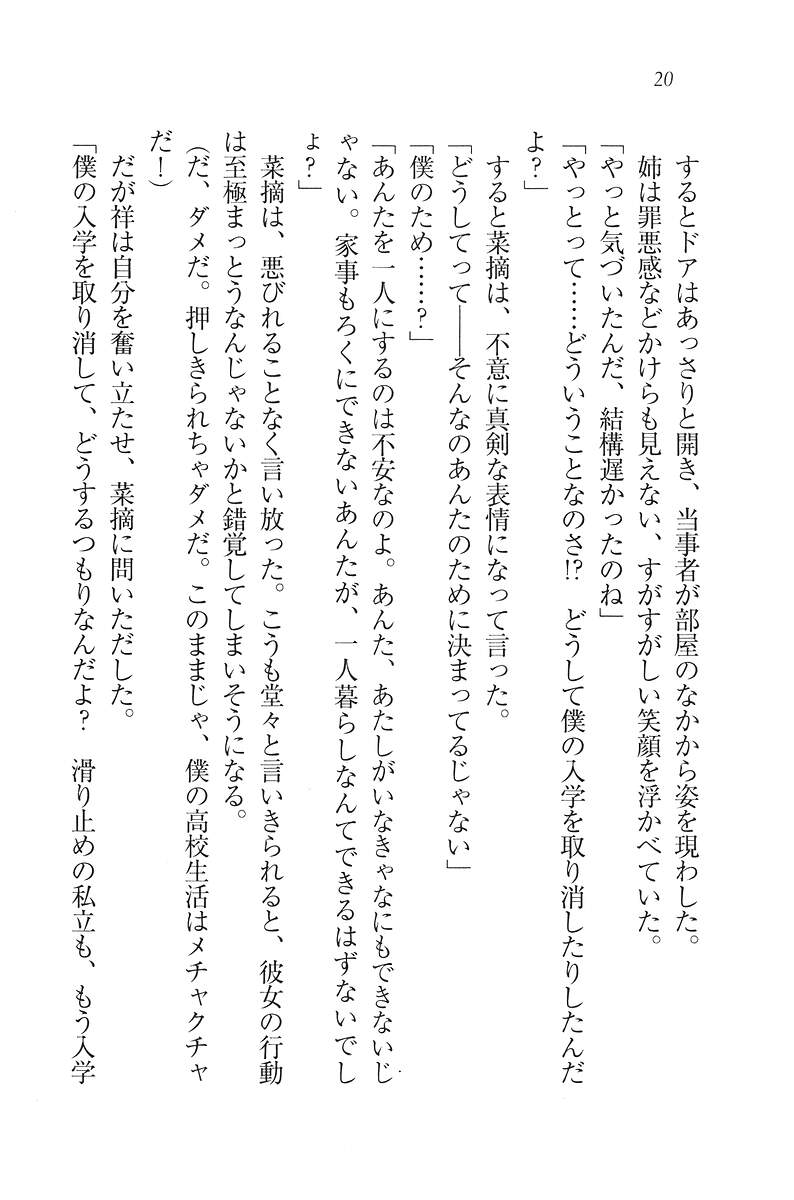 20
するとドアはあっさりと開き、当事者が部屋のなかから姿を現わした。
姉は罪悪感などかけらも見えない、すがすがしい笑顔を浮かべていた。
「やっと気づいたんだ、結構遅かったのね」
「やっとって……どういうことなのさ!?　どうして僕の入学を取り消したりしたんだ
よ?」
すると菜摘は、不意に真剣な表情になって言った。
「どうしてって――そんなのあんたのために決まってるじゃない」
「僕のため……?」
「あんたを一人にするのは不安なのよ。あんた、あたしがいなきゃなにもできないじ
ゃない。家事もろくにできないあんたが、一人暮らしなんてできるはずないでし
ょ?」
菜摘は、悪びれることなく言い放った。こうも堂々と言いきられると、彼女の行動
は至極まっとうなんじゃないかと錯覚してしまいそうになる。
（だ、ダメだ。押しきられちゃダメだ。このままじゃ、僕の高校生活はメチャクチャ
だ!）
だが祥は自分を奮い立たせ、菜摘に問いただした。
「僕の入学を取り消して、どうするつもりなんだよ?　滑り止めの私立も、もう入学